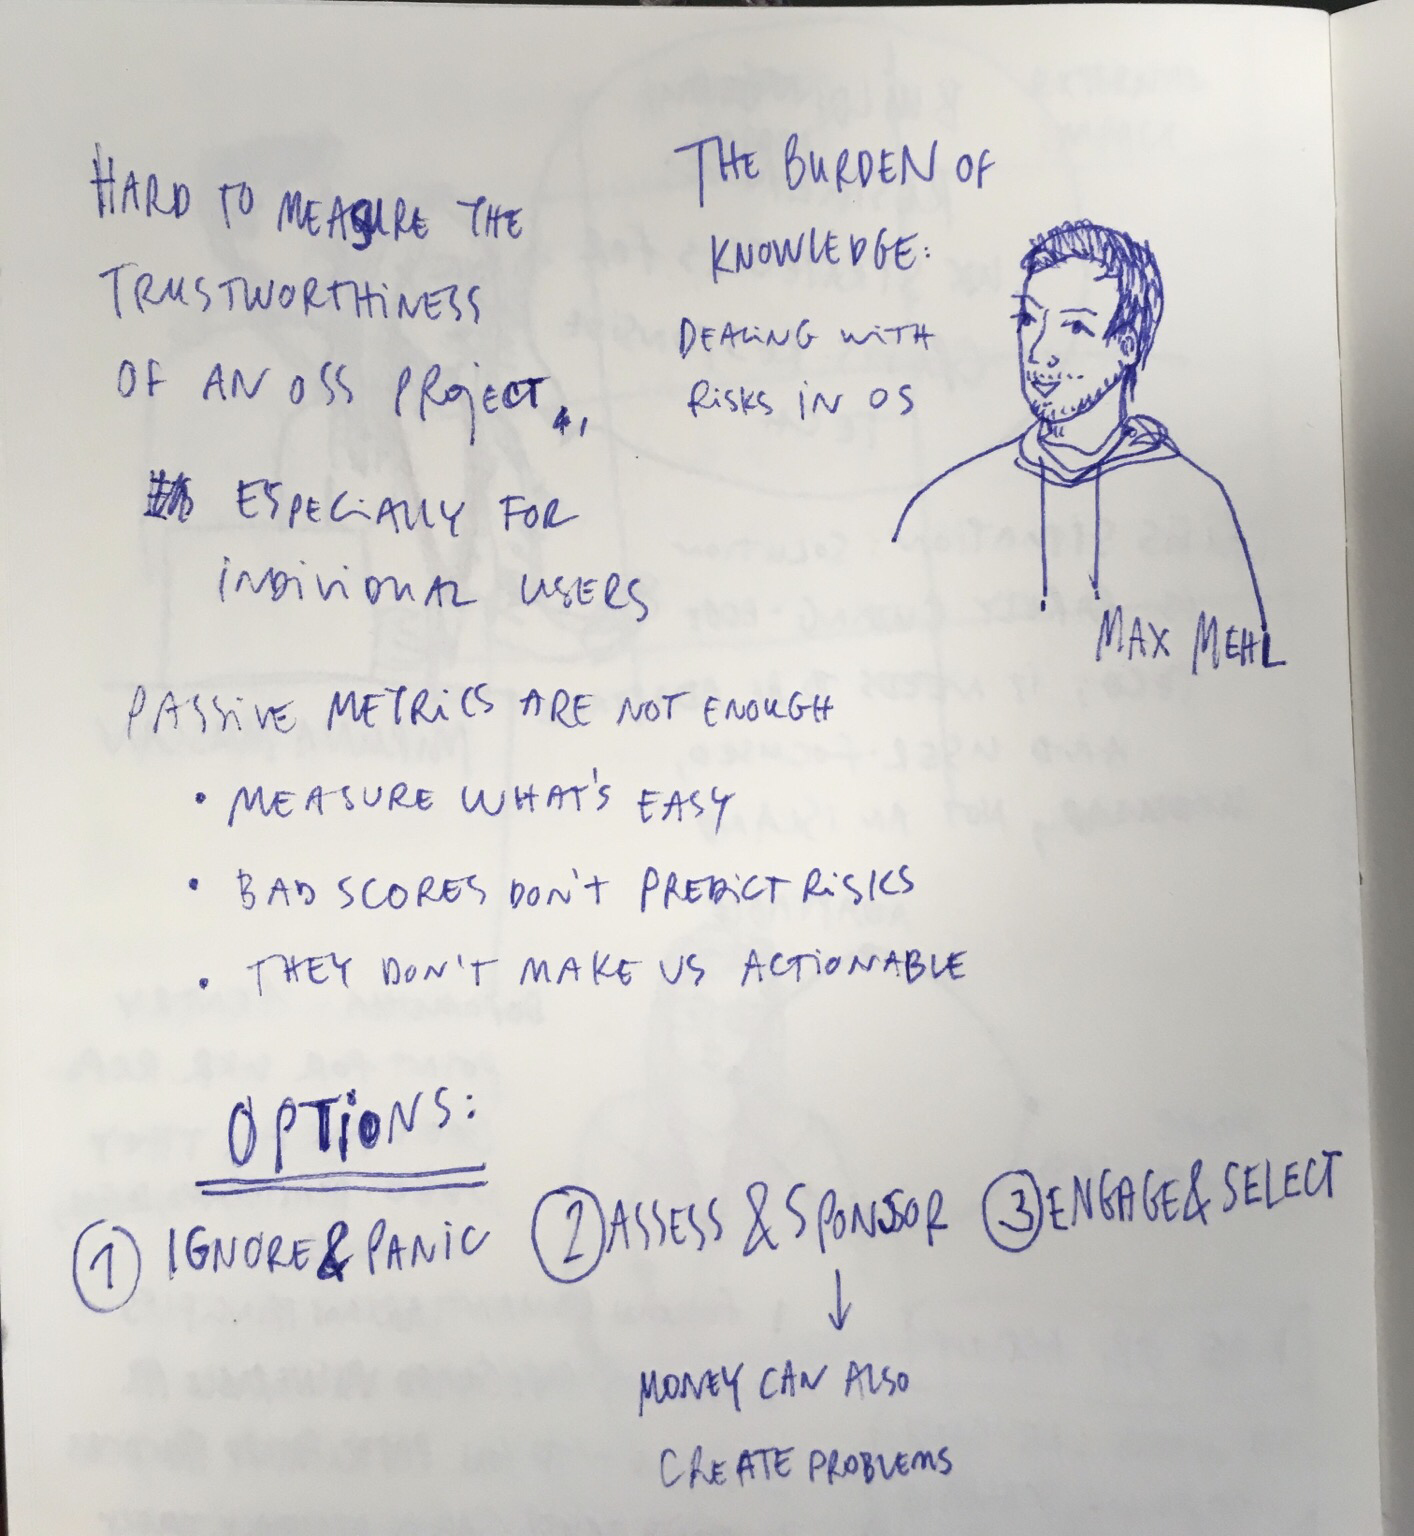 THE BURDEN OF
KNOWLEDGE:
DEALING WITH
RISKS IN OS
MAX MEHL
HARD TO MEASURE THE
TRUSTWORTHINESS
OF AN OSS PROJECT,
ESPECIALLY FOR
INDIVIDUAL USERS
PASSIVE METRICS ARE NOT ENOUGH
• MEASURE WHAT'S EASY
• BAD SCORES DON'T PREDICT RISKS
• THEY DON'T MAKE US ACTIONABLE
OPTIONS:
1 IGNORE & PANIC
2 ASSESS & SPONSOR
3 ENGAGE & SELECT
↓
MONEY CAN ALSO
CREATE PROBLEMS